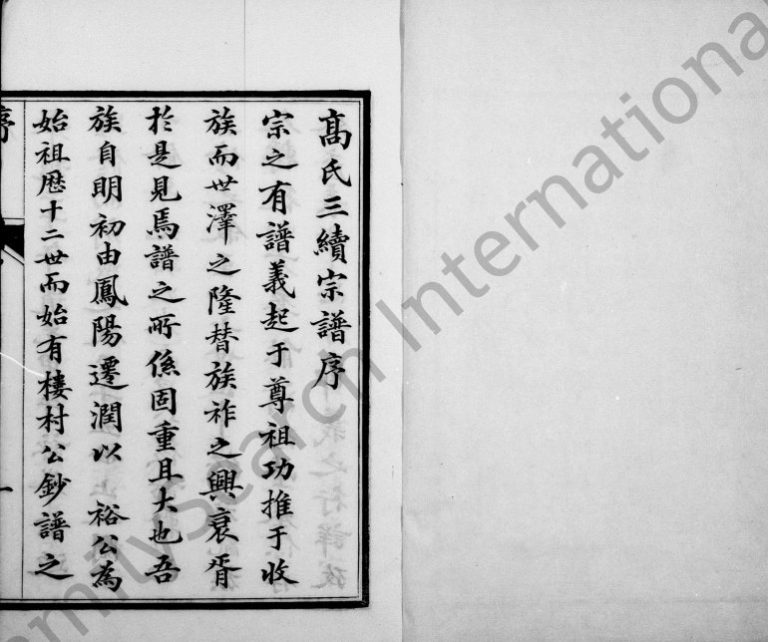 高氏三續宗譜序
宗之有譜義起于尊祖功推于收
族而世澤之隆替族祚之興衰胥
於是見焉譜之所係固重且大也吾
族自明初由鳳陽遷潤以 裕公為
始祖歷十二世而始有樓村公鈔譜之
序
一
FamilySearch International